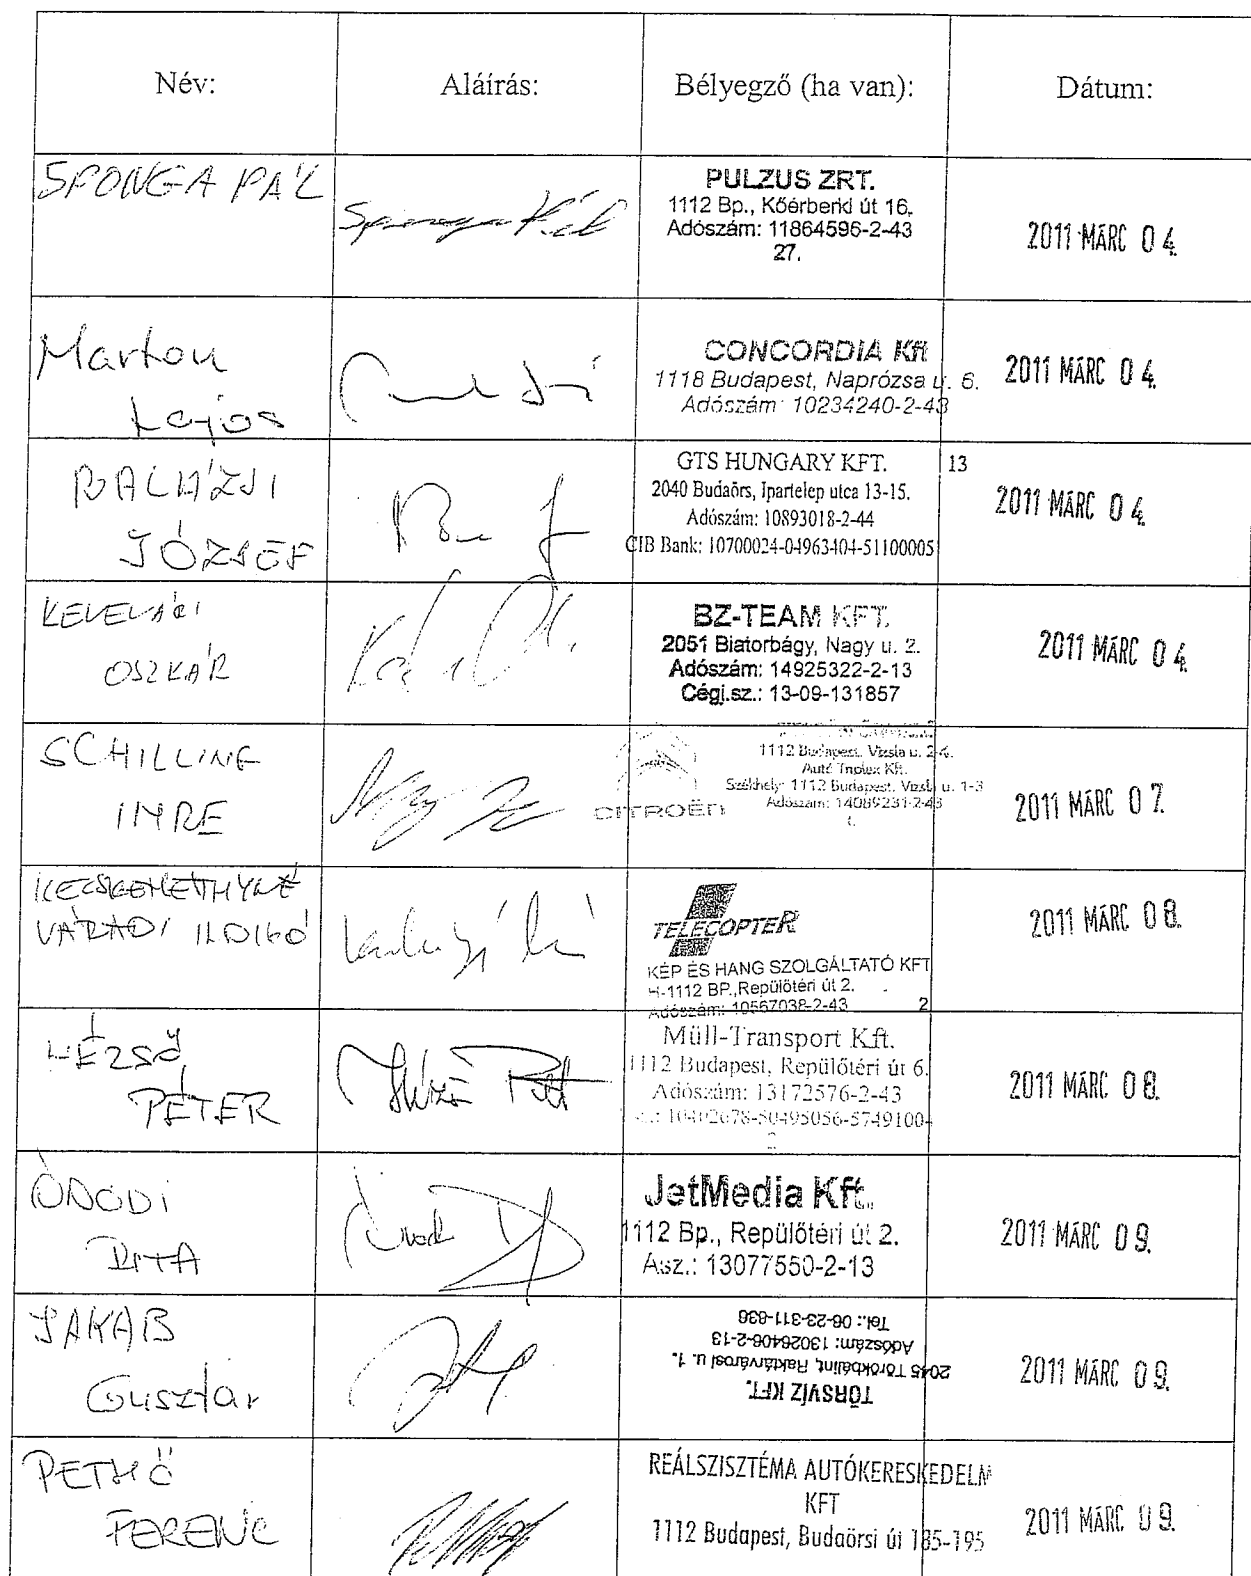 Név: Aláírás: Bélyegző (ha van): Dátum:
SPONGA PÁL
Sponga Pál
PULZUS ZRT.
1112 Bp., Kőérberki út 16.
Adószám: 11864596-2-43
27.
2011 MÁRC 04.
Marton
Lajos
CONCORDIA Kft
1118 Budapest, Naprózsa u. 6.
Adószám: 10234240-2-43
2011 MÁRC 04.
BALÁZSI
JÓZSEF
GTS HUNGARY KFT. 13
2040 Budaörs, Ipartelep utca 13-15.
Adószám: 10893018-2-44
CIB Bank: 10700024-04963404-51100005
2011 MÁRC 04.
OSZKÁR
BZ-TEAM KFT.
2051 Biatorbágy, Nagy u. 2.
Adószám: 14925322-2-13
Cégj.sz.: 13-09-131857
2011 MÁRC 04.
SCHILLING
IMRE
CITROËN
1112 Budapest, Vizsla u. 2-4.
Autó Triplex Kft.
Székhely: 1112 Budapest, Vizsla u. 1-3
Adószám: 14089231-2-43
2011 MÁRC 07.
KECSKEMÉTHYNÉ
VÁRADI ILDIKÓ
TELECOPTER
KÉP ÉS HANG SZOLGÁLTATÓ KFT
H-1112 BP.,Repülőtéri út 2.
Adószám: 10567038-2-43 2
2011 MÁRC 08.
HÉZSŐ
PÉTER
Müll-Transport Kft.
1112 Budapest, Repülőtéri út 6.
Adószám: 13172576-2-43
2011 MÁRC 08.
ÓNODI
RITA
JetMedia Kft.
1112 Bp., Repülőtéri út 2.
Asz.: 13077550-2-13
2011 MÁRC 09.
JAKAB
Gusztáv
TÖRSVÍZ KFT.
2045 Törökbálint, Raktárvárosi u. 1.
Adószám: 13026406-2-13
Tel.: 06-23-311-836
2011 MÁRC 09.
PETHŐ
FERENC
REÁLSZISZTÉMA AUTÓKERESKEDELM
KFT
1112 Budapest, Budaörsi út 185-195
2011 MÁRC 09.